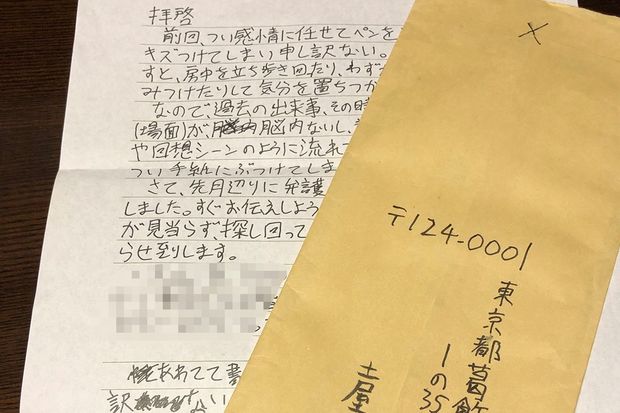 拝啓
前回、つい感情に任せてペンを
キズつけてしまい申し訳ない。
すと、房中を立ち歩き回たり、わず
みつけたりして気分を置ちつか
なので、過去の出来事、その時
(場面)が 脳内ないし、
や回想シーンのように流れ
つい手紙にぶつけてしま
さて、先月辺りに弁護
しました。すぐお伝えしよう
が見当らず、探し回って
らせ到します。
あわてて書
訳 ない
〒124-0001
東京都葛飾
1の35
土屋